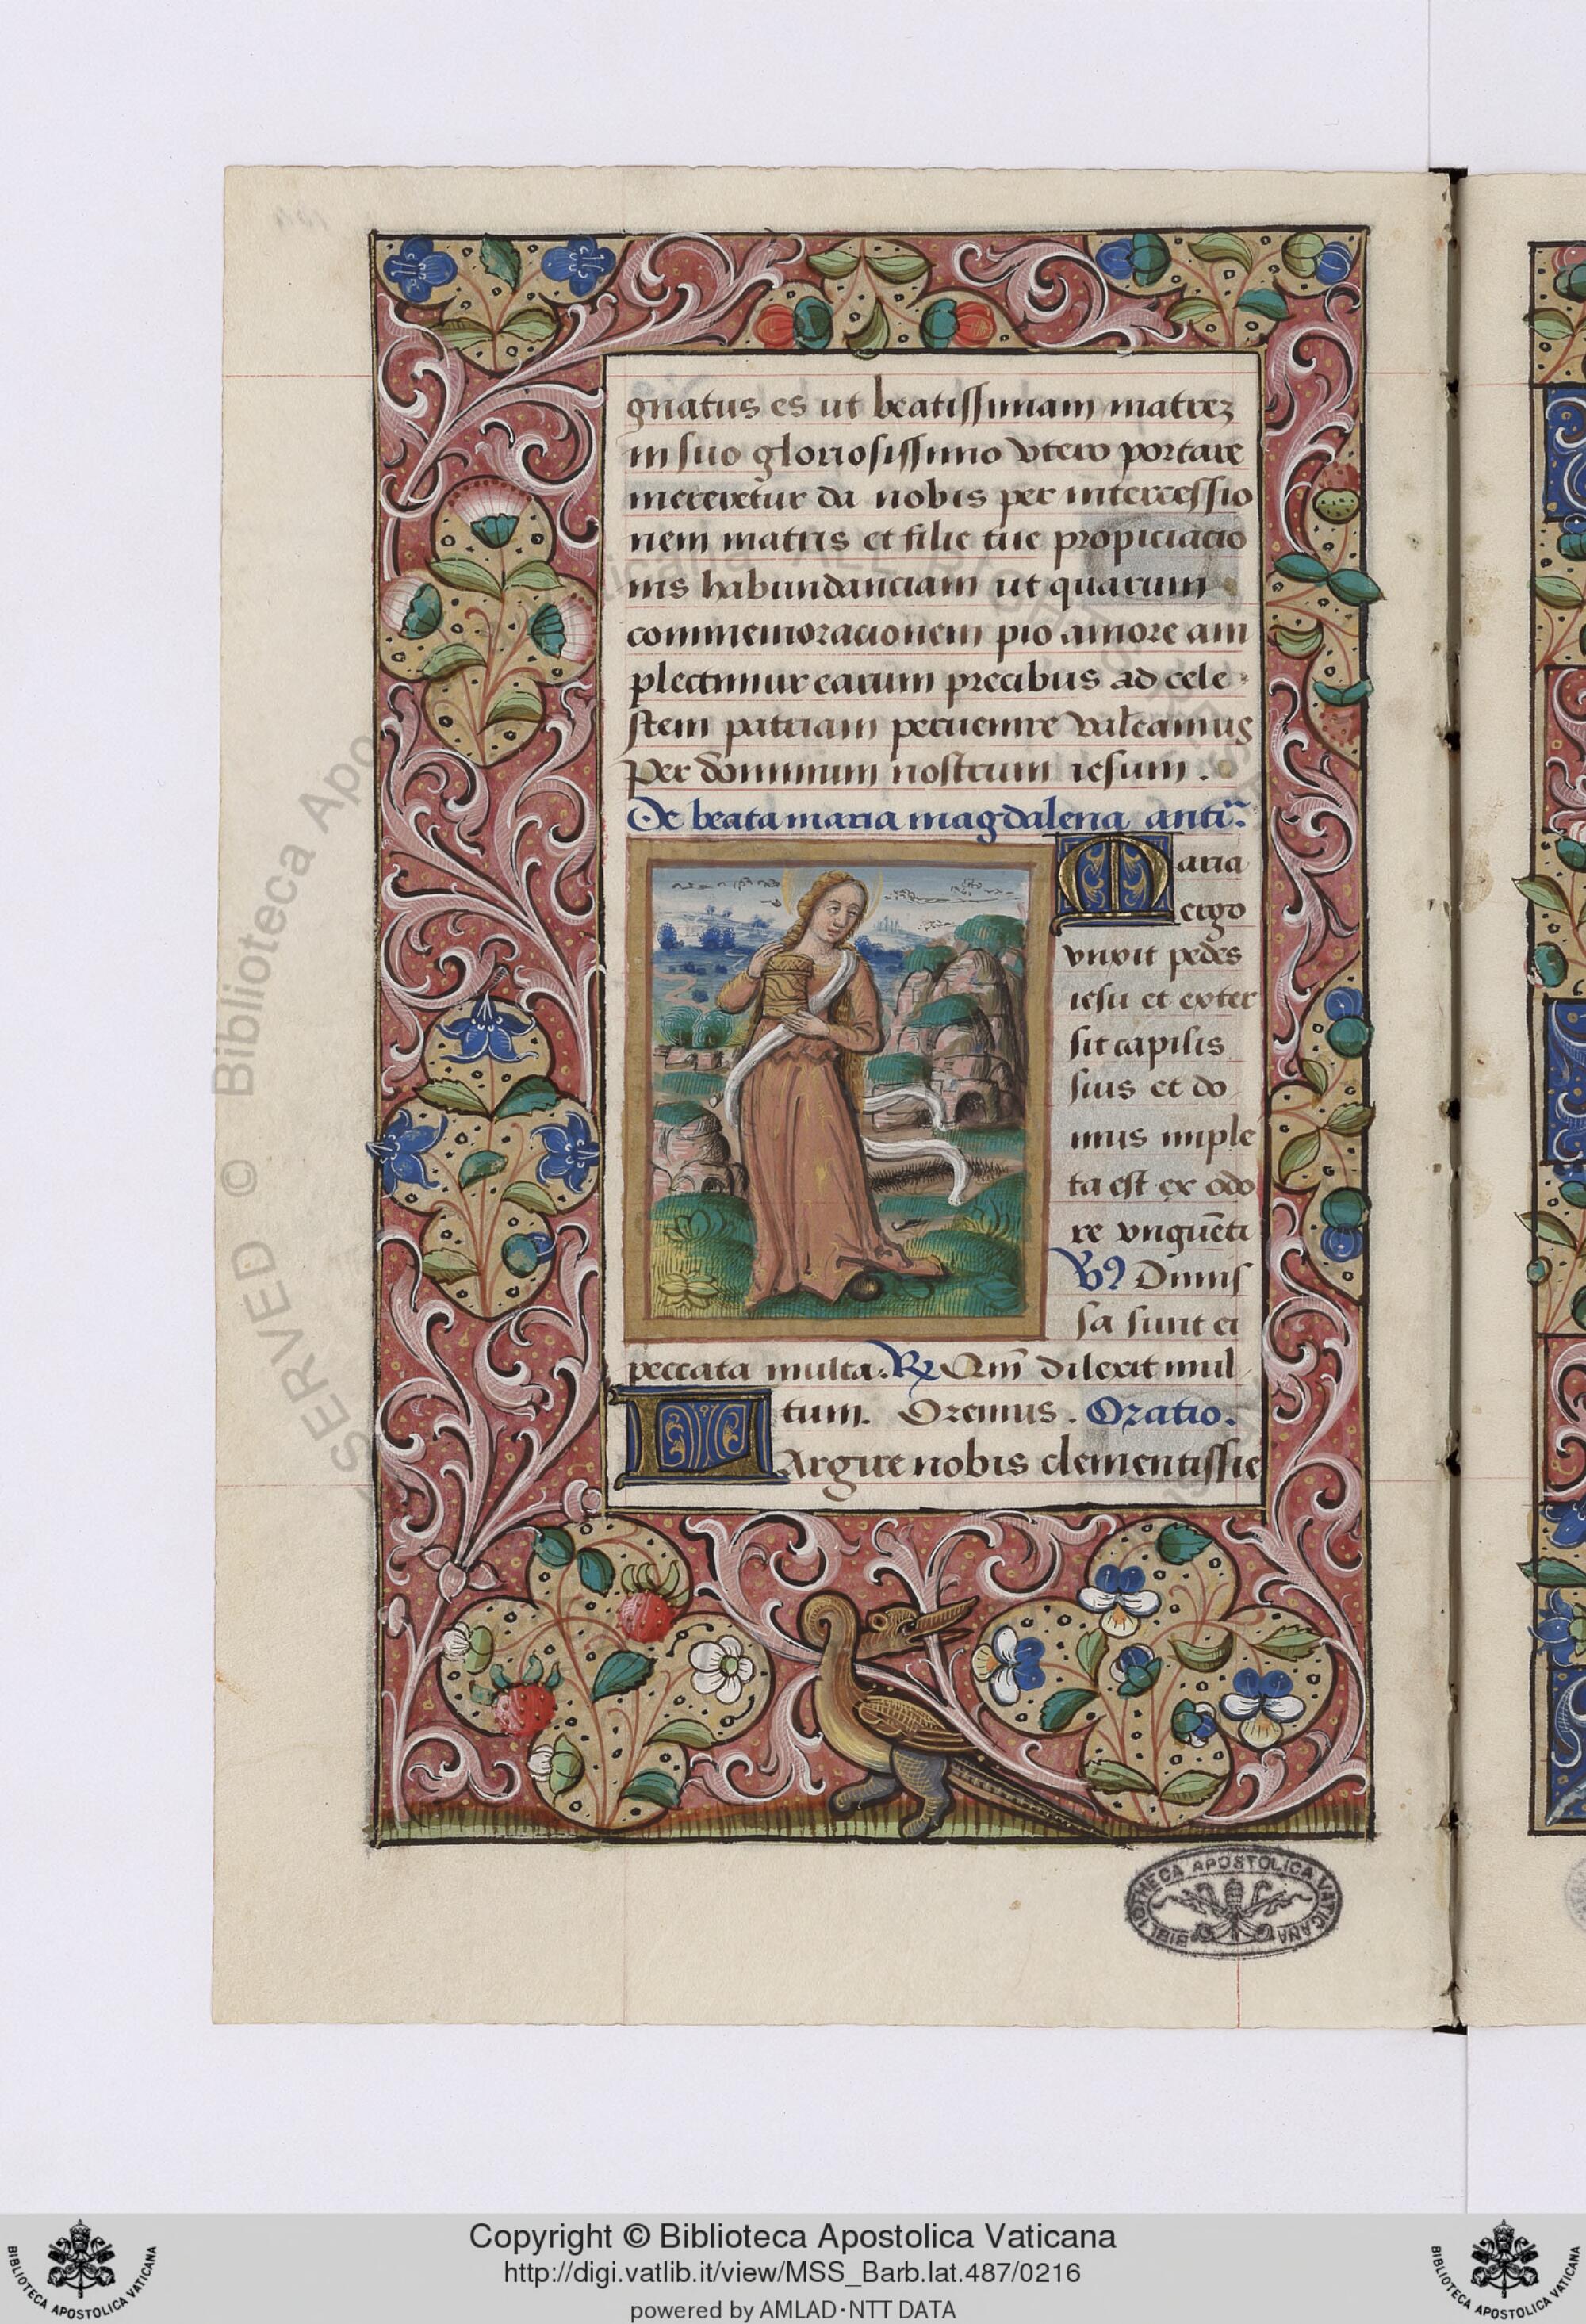 gnatus es ut beatissimam matrez
in suo gloriosissimo vtero portare
mereretur da nobis per intercessio
nem matris et filie tue propiciacio
nis habundanciam ut quarum
commemoracionem pio amore am
plectimur earum precibus ad cele
stem patriam peruenire valeamus
Per dominum nostrum iesum.
De beata maria magdalena antiᵃ.
Maria
ergo
vnxit pedes
iesu et exter
sit capilis
suis et do
mus imple
ta est ex odo
re vnguẽti
℣ Dimis
sa sunt ei
peccata multa. ℟ Qm̃ dilexit mul
tum. Oremus. Oratio.
LArgire nobis clementissie
BIBLIOTHECA APOSTOLICA VATICANA
Copyright © Biblioteca Apostolica Vaticana
http://digi.vatlib.it/view/MSS_Barb.lat.487/0216
powered by AMLAD·NTT DATA
BIBLIOTECA APOSTOLICA VATICANA
BIBLIOTECA APOSTOLICA VATICANA